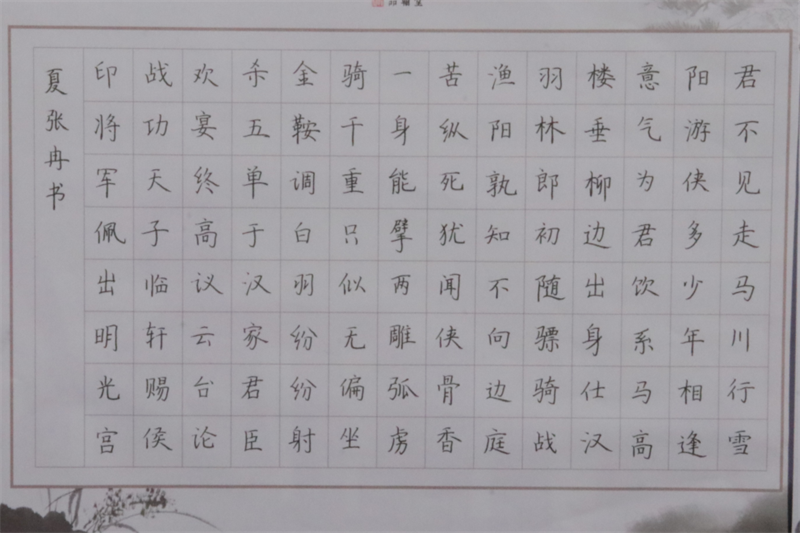 君不见走马川行雪
阳游侠多少年相逢
意气为君饮系马高
楼垂柳边出身仕汉
羽林郎初随骠骑战
渔阳孰知不向边庭
苦纵死犹闻侠骨香
一身能擘两雕弧虏
骑千重只似无偏坐
金鞍调白羽纷纷射
杀五单于汉家君臣
欢宴终高议云台论
战功天子临轩赐侯
印将军佩出明光宫
夏张冉书